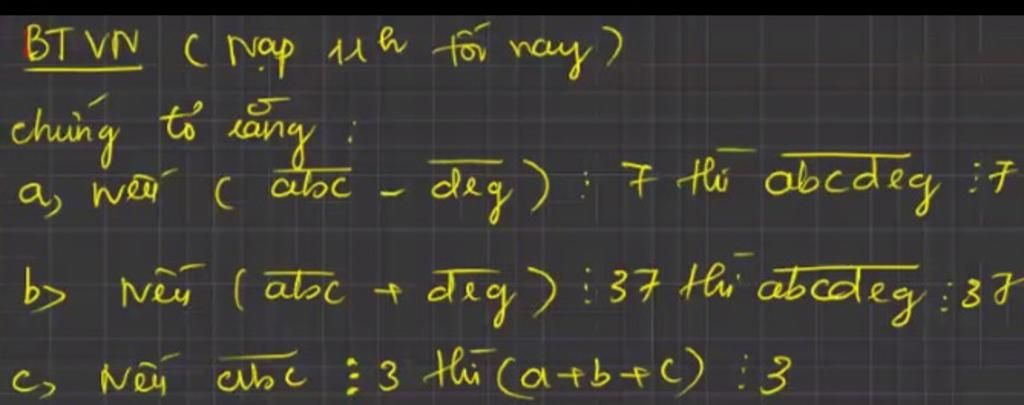 BTVN (Nạp 11h tối nay)
chứng tỏ rằng :
a, nếu ( abc - deg ) ⋮ 7 thì abcdeg ⋮ 7
b> Nếu ( abc + deg ) ⋮ 37 thì abcdeg ⋮ 37
c, Nếu abc ⋮ 3 thì (a+b+c) ⋮ 3